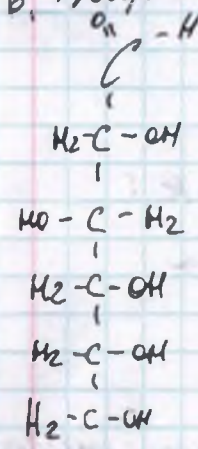 O - H
C
H₂-C-OH
HO-C-H₂
H₂-C-OH
H₂-C-OH
H₂-C-OH